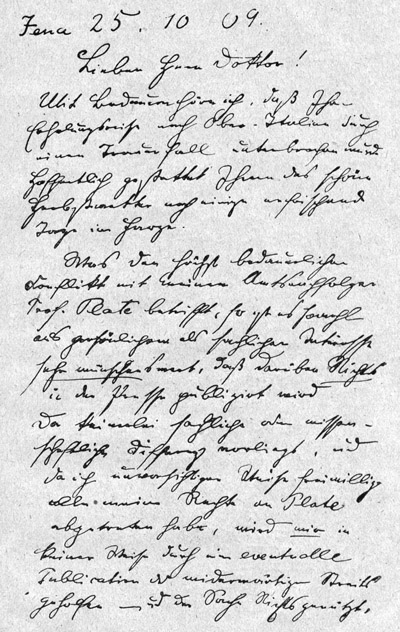 Jena 25. 10 09.
Lieber Herr Doktor!
Mit Bedauern höre ich, daß Ihre
Erholungsreise nach Ober-Italien durch
einen Trauerfall unterbrochen wurde
Hoffentlich gestattet Ihnen das schöne
Herbstwetter noch einige erfrischende
Tage im Harze.
Was den höchst bedauerlichen
Conflikt mit meinem Amtsnachfolger
Prof. Plate betrifft, so ist es sowohl
aus persönlichem als sachlichen Interesse
sehr wünschenswert, daß darüber Nichts
in der Presse publizirt wird
Da keinerlei sachliche oder wissen-
schaftliche Differenz vorliegt, und
da ich unvorsichtiger Weise freiwillig
alle meine Rechte an Plate
abgetreten habe, wird mir in
keiner Weise durch eine eventuelle
Publication des widerwärtigen Streits
geholfen — und der Sache Nichts genützt.